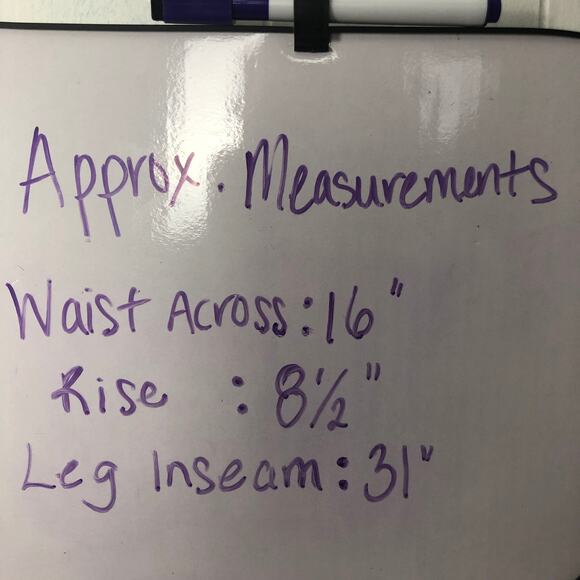 Approx. Measurements
Waist Across: 16"
Rise : 8 1/2"
Leg Inseam: 31"